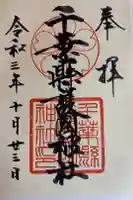 奉拝
千葉縣護國神社
令和三年十月廿三日
千葉縣
神社印